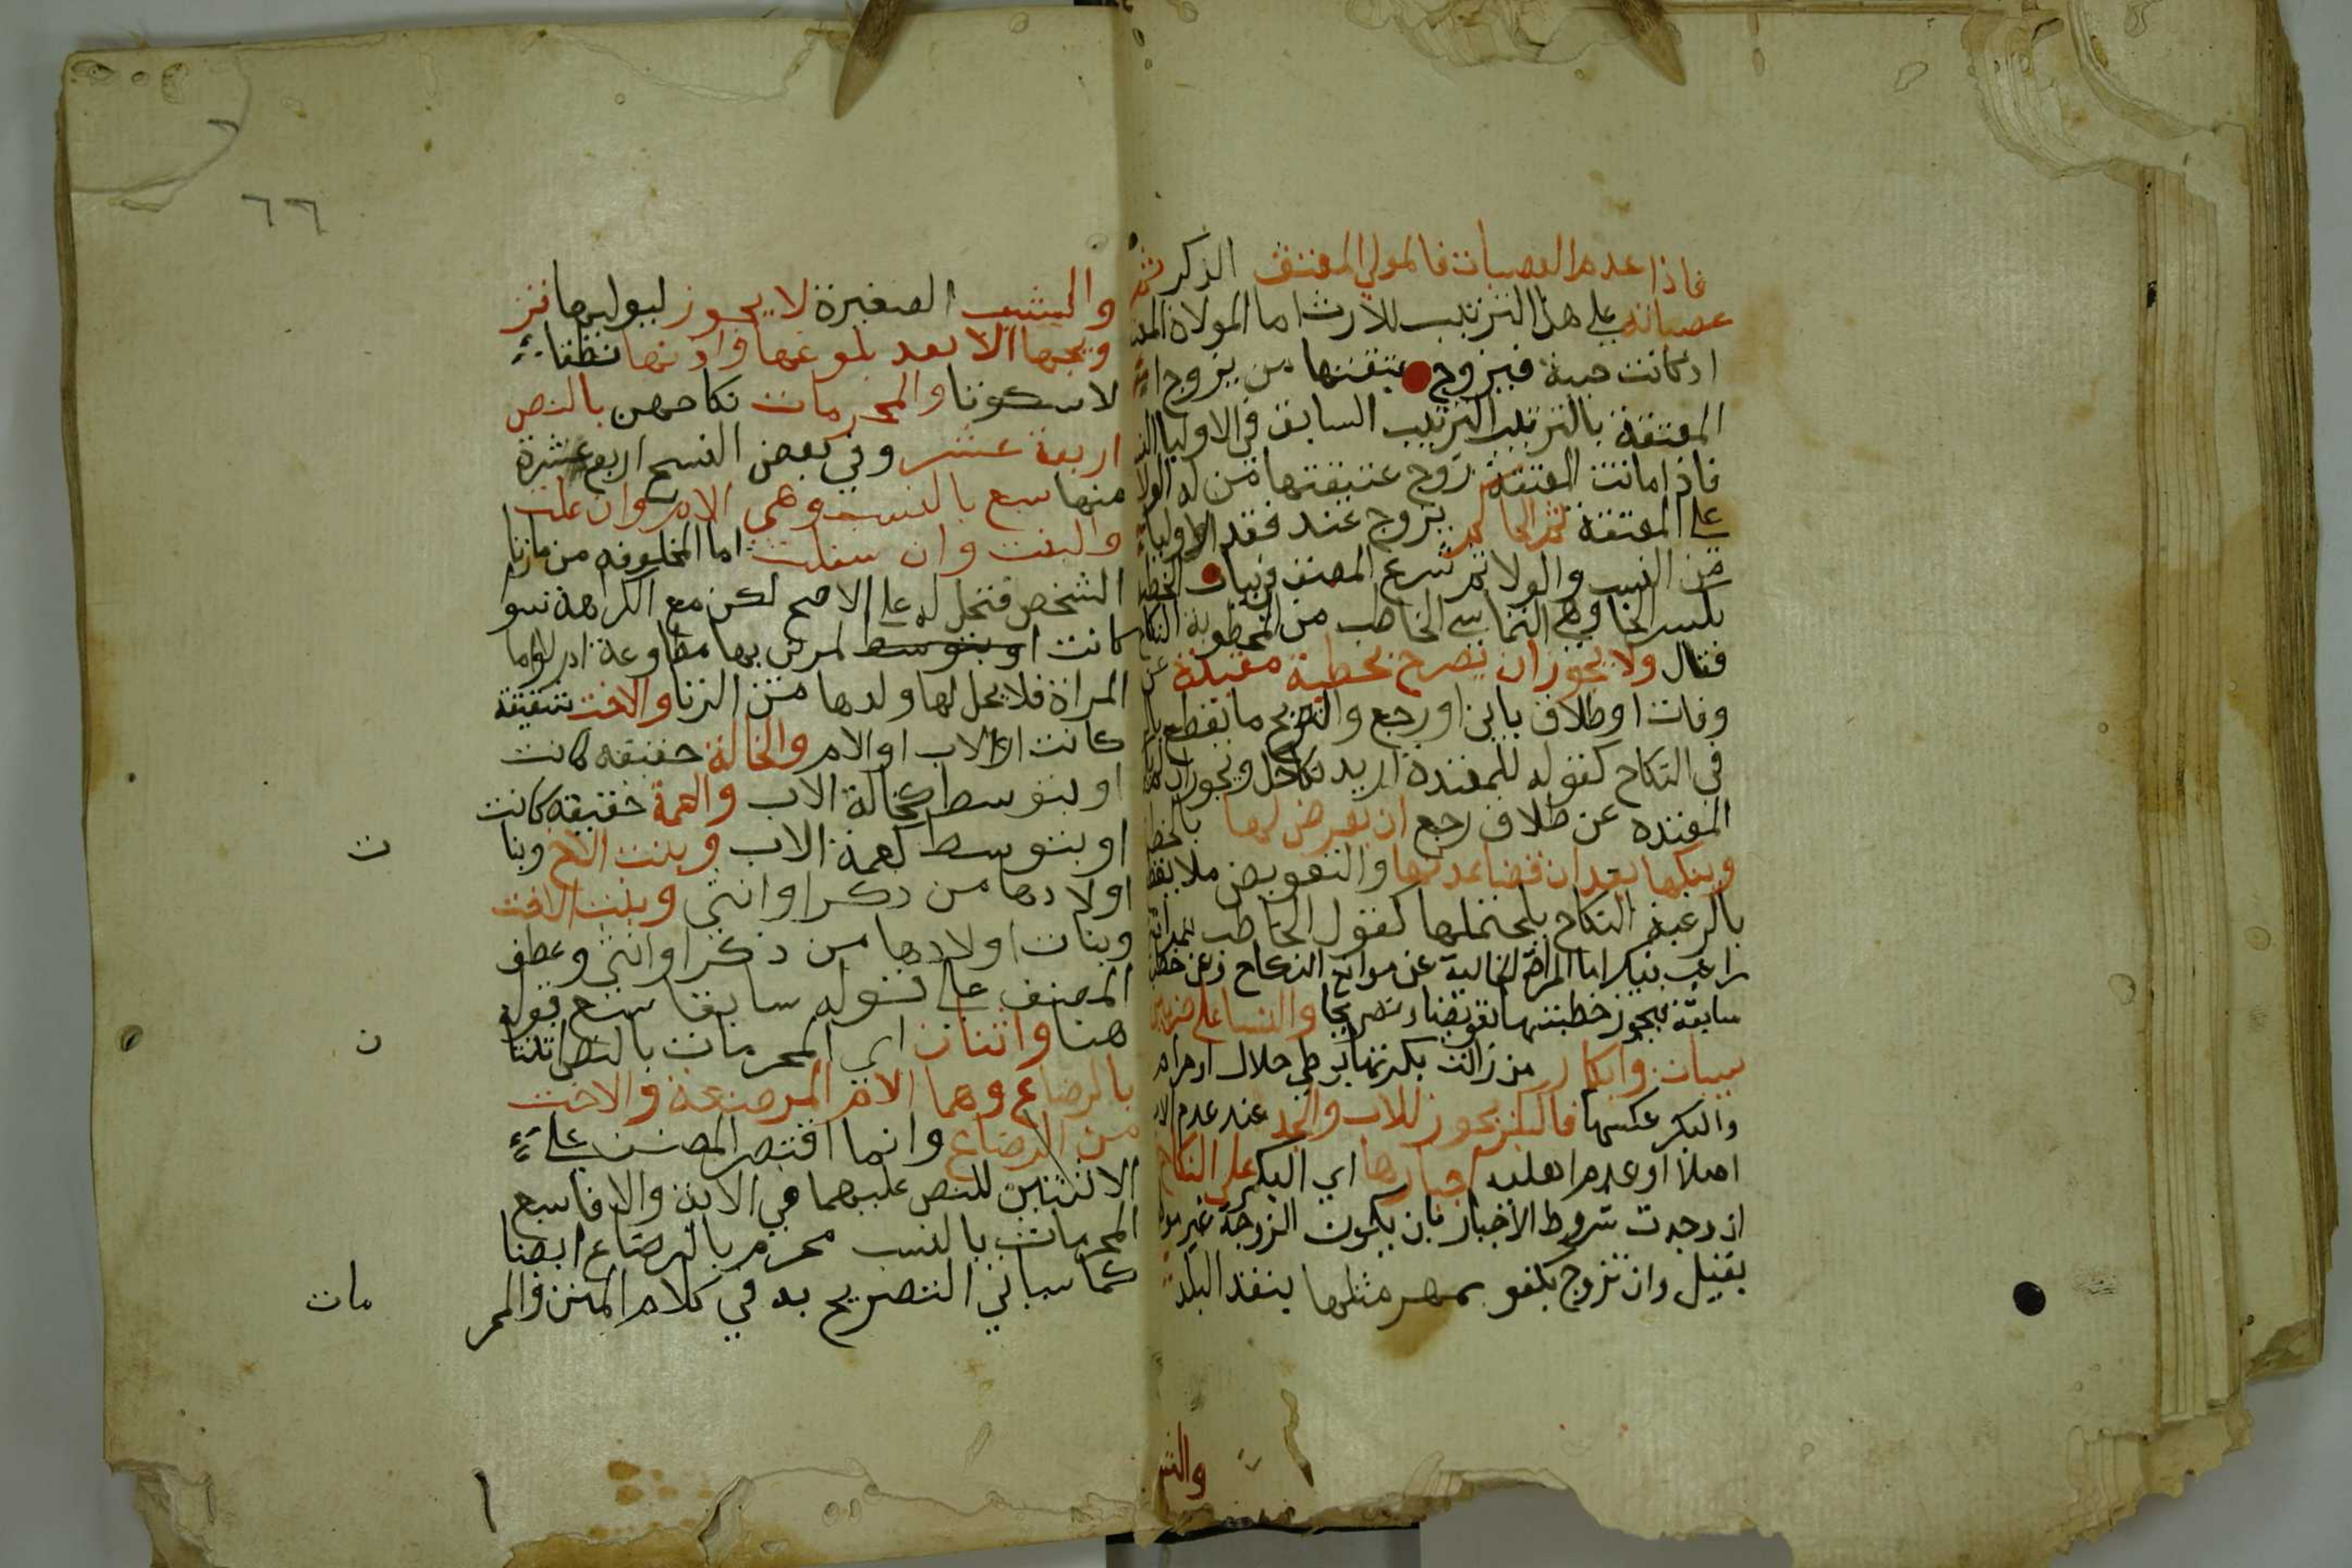 فاذا عدم العصبات فالمولي المعتق الذكر ثم
عصباته علي هذا الترتيب للارث اما المولاة المعتـ
اذ كانت حية فيزوج عتيقتها من يزوج
المعتقة بالترتيب الترتيب السابق في الاوليا
فاذا ماتت المعتقة زوج عتيقتها من له الولا
علي المعتقة ثم الحاكم يزوج عند فقد الاولياء
من النسب والولا ثم شرع المصنف في بيان الخطبة
بكسر الخا وهي التماس الخاطب من المخطوبة النكاح
فقال ولا يجوز ان يصرح بخطبة معتدة عن
وفات او طلاق باين او رجع والتصريح ما يقطع
في النكاح كقوله للمعتدة اريد نكاحك ويجوز ان
المعتده عن طلاق رجع ان يعرض لها بالخطبـ
وينكحها بعد انقضا عدتها والتعويض ملا يقطع
بالرغبة النكاح بل يحتملها كقول الخاطب
راغب بنيك اما المراة الخالية عن موانع النكاح وعن خطبة
سابقة فيجوز خطبتها تعويضا وتصريحا والنسا على ضربين
ثيبات وابكار من زالت بكرتها بوطي حلال او حرام
والبكر عكسها فالبكر يجوز للاب والجد عند عدم
اصلا او عدم اهليه اجبارها اي البكر علي النكاح
ان وجدت شروط الاخبار بان يكون الزوجة غير
بقبل وان تزوج بكفو بمهر مثلها بنقد البلد
والثيـ
٦٦
والثييب الصغيرة لا يجوز ليوليها تز
ويجها الا بعد بلوغها واذنها نظقا
لا سكوتا والمحرمات نكاحهن بالنص
اربعة عشر وفي بعض النسخ اربع عشرة
منها سبع بالنسب وهي الام وان علت
والبنت وان سفلت اما المخلوقه من ما زنا
الشخص فتحل له علي الاصح لكن مع الكراهة سو
كانت او بتوسط لمزني بها مطاوعة ام لا واما
المراة فلا يحل لها ولدها من الزنا والاخت شقيقة
كانت او لاب او الام والخالة حقيقه كانت
او بتوسط كخالة الاب والعمة حقيقه كانت
او بتوسط كعمة الاب وبنت الاخ وبنا ت
اولادها من ذكر او انثي وبنت الاخت
وبنات اولادها من ذكر او انثي وعطف
المصنف علي قوله سابقا سبع قوله
هنا واثنان اي المحرمات بالنص اثنتا ن
بالرضاع وهما الام المرضعة والاخت
من الرضاع وانما اقتصر المصنف علي
الاثنتين للنص عليهما في الاية والا فالسبع
المحرمات بالنسب محرم بالرضاع ايضا
كما سياتي التصريح به في كلام المتن والمحر مات